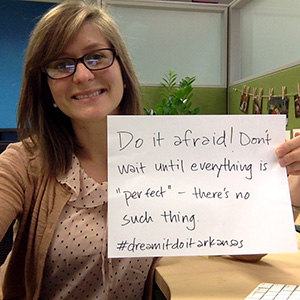 Do it afraid! Don't
wait until everything is
"perfect" – there's no
such thing.
#dreamitdoitarkansas